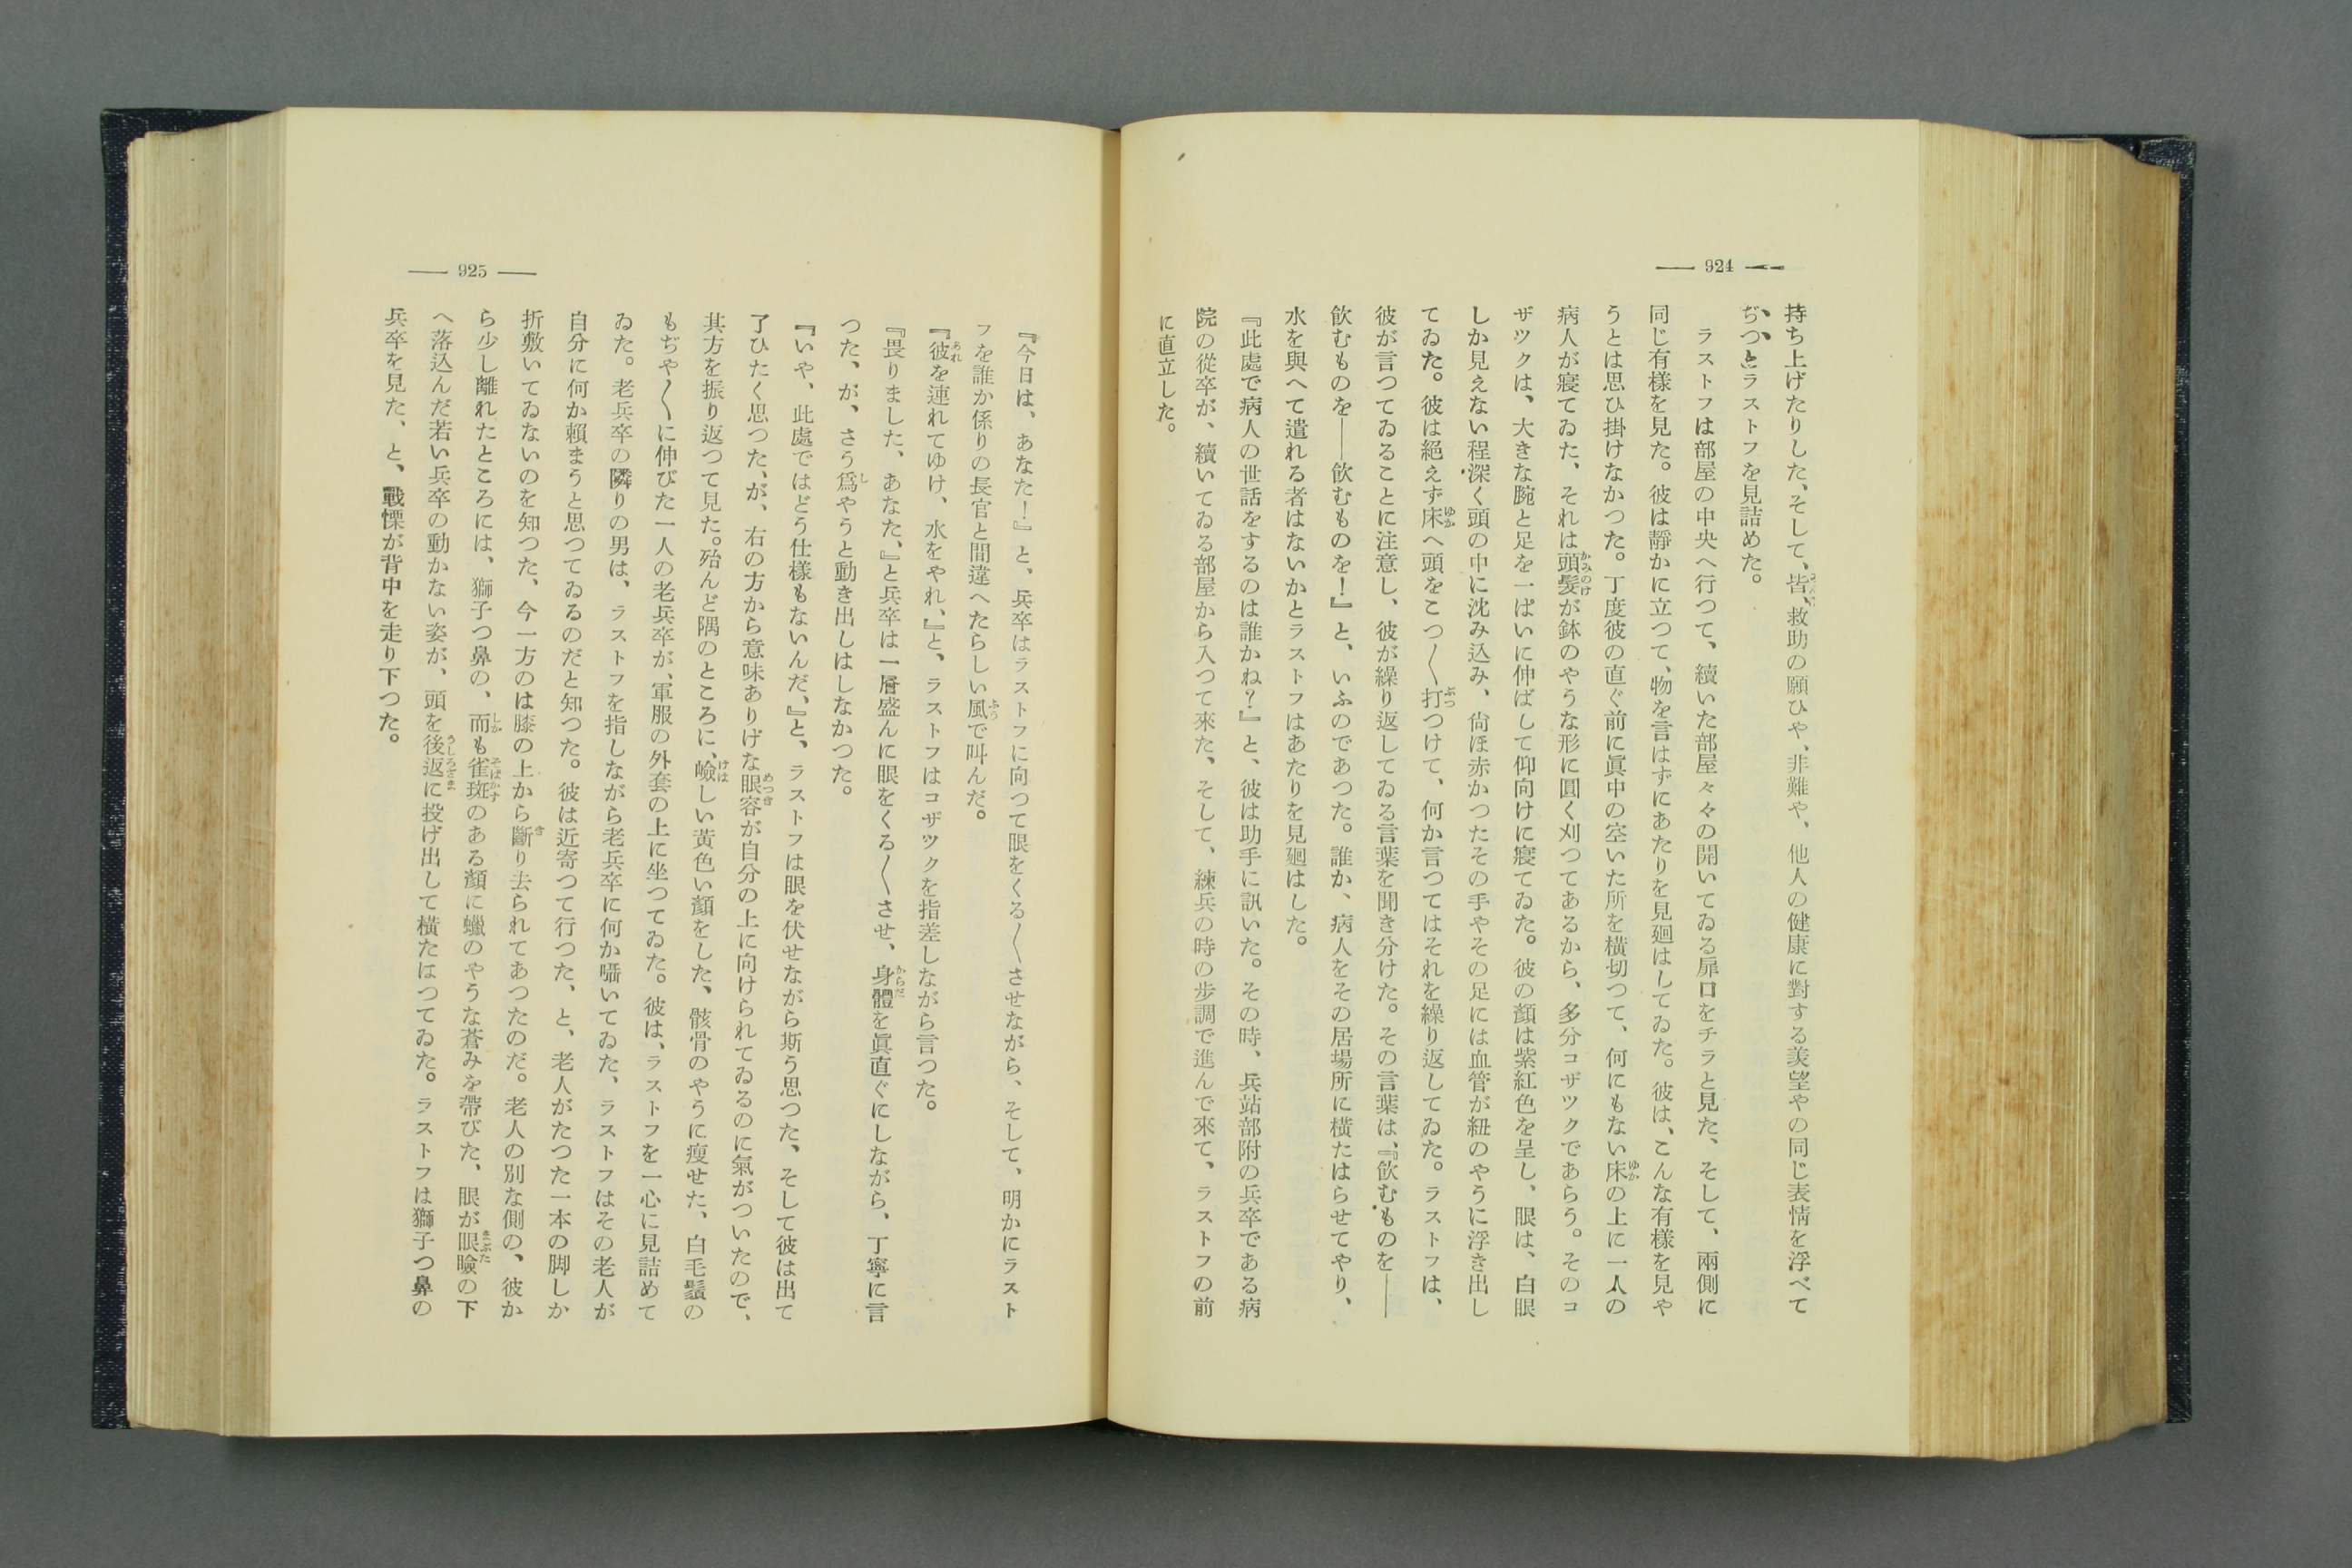 924
持ち上げたりした、そして、皆、救助の願ひや、非難や、他人の健康に對する羨望やの同じ表情を浮べて
ぢつとラストフを見詰めた。
ラストフは部屋の中央へ行つて、續いた部屋々々の開いてゐる扉口をチラと見た、そして、兩側に
同じ有樣を見た。彼は靜かに立つて、物を言はずにあたりを見廻はしてゐた。彼は、こんな有樣を見や
うとは思ひ掛けなかつた。丁度彼の直ぐ前に眞中の空いた所を橫切つて、何にもない床の上に一人の
病人が寢てゐた、それは頭髮が鉢のやうな形に圓く刈つてあるから、多分コザツクであらう。そのコ
ザツクは、大きな腕と足を一ぱいに伸ばして仰向けに寢てゐた。彼の顏は紫紅色を呈し、眼は、白眼
しか見えない程深く頭の中に沈み込み、尙ほ赤かつたその手やその足には血管が紐のやうに浮き出し
てゐた。彼は絕えず床へ頭をこつ〱打つけて、何か言つてはそれを繰り返してゐた。ラストフは、
彼が言つてゐることに注意し、彼が繰り返してゐる言葉を聞き分けた。その言葉は、『飮むものを――
飮むものを――飮むものを!』と、いふのであつた。誰か、病人をその居場所に橫たはらせてやり、
水を與へて遣れる者はないかとラストフはあたりを見廻はした。
『此處で病人の世話をするのは誰かね?』と、彼は助手に訊いた。その時、兵站部附の兵卒である病
院の從卒が、續いてゐる部屋から入つて來た、そして、練兵の時の步調で進んで來て、ラストフの前
に直立した。
925
『今日は、あなた!』と、兵卒はラストフに向つて眼をくる〱させながら、そして、明かにラスト
フを誰か係りの長官と間違へたらしい風で叫んだ。
『彼を連れてゆけ、水をやれ、』と、ラストフはコザツクを指差しながら言つた。
『畏りました、あなた、』と兵卒は一層盛んに眼をくる〱させ、身體を眞直ぐにしながら、丁寧に言
つた、が、さう爲やうと動き出しはしなかつた。
『いや、此處ではどう仕樣もないんだ、』と、ラストフは眼を伏せながら斯う思つた、そして彼は出て
了ひたく思つた、が、右の方から意味ありげな眼容が自分の上に向けられてゐるのに氣がついたので、
其方を振り返つて見た。殆んど隅のところに、嶮しい黃色い顏をした、骸骨のやうに瘦せた、白毛鬚の
もぢや〱に伸びた一人の老兵卒が、軍服の外套の上に坐つてゐた。彼は、ラストフを一心に見詰めて
ゐた。老兵卒の隣りの男は、ラストフを指しながら老兵卒に何か囁いてゐた、ラストフはその老人が
自分に何か賴まうと思つてゐるのだと知つた。彼は近寄つて行つた、と、老人がたつた一本の脚しか
折敷いてゐないのを知つた、今一方のは膝の上から斷り去られてあつたのだ。老人の別な側の、彼か
ら少し離れたところには、獅子つ鼻の、而も雀斑のある顏に蠟のやうな蒼みを帶びた、眼が眼瞼の下
へ落込んだ若い兵卒の動かない姿が、頭を後返に投げ出して橫たはつてゐた。ラストフは獅子つ鼻の
兵卒を見た、と、戰慄が背中を走り下つた。